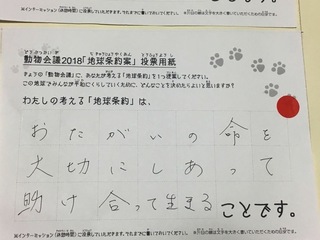 ※インターミッション(休憩時間)に投票していただきます。それまでに書いておいてください。
どうぶつかいぎ ちきゅうじょうやくあん とうひょうようし
動物会議2018「地球条約案」投票用紙
きょうの「動物会議」に、あなたが考える「地球条約」を1つ提案してください。
この地球でみんなが平和にくらしていくために、どんなことを決めたらよいと思いますか?
わたしの考える「地球条約」は、
おたがいの命を
大切にしあって
助け合って生きる ことです。
※インターミッション(休憩時間)に投票していただきます。それまでに書いておいてください。